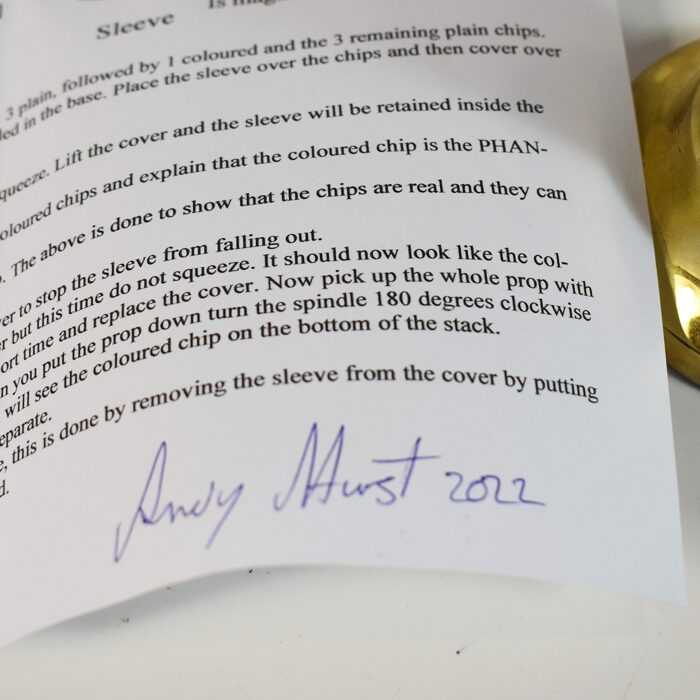 Sleeve
Is
3 plain, followed by 1 coloured and the 3 remaining plain chips.
in the base. Place the sleeve over the chips and then cover over
queeze. Lift the cover and the sleeve will be retained inside the
oloured chips and explain that the coloured chip is the PHAN-
. The above is done to show that the chips are real and they can
er to stop the sleeve from falling out.
r but this time do not squeeze. It should now look like the col-
ort time and replace the cover. Now pick up the whole prop with
n you put the prop down turn the spindle 180 degrees clockwise
will see the coloured chip on the bottom of the stack.
, this is done by removing the sleeve from the cover by putting
eparate.
d.
Andy 2022